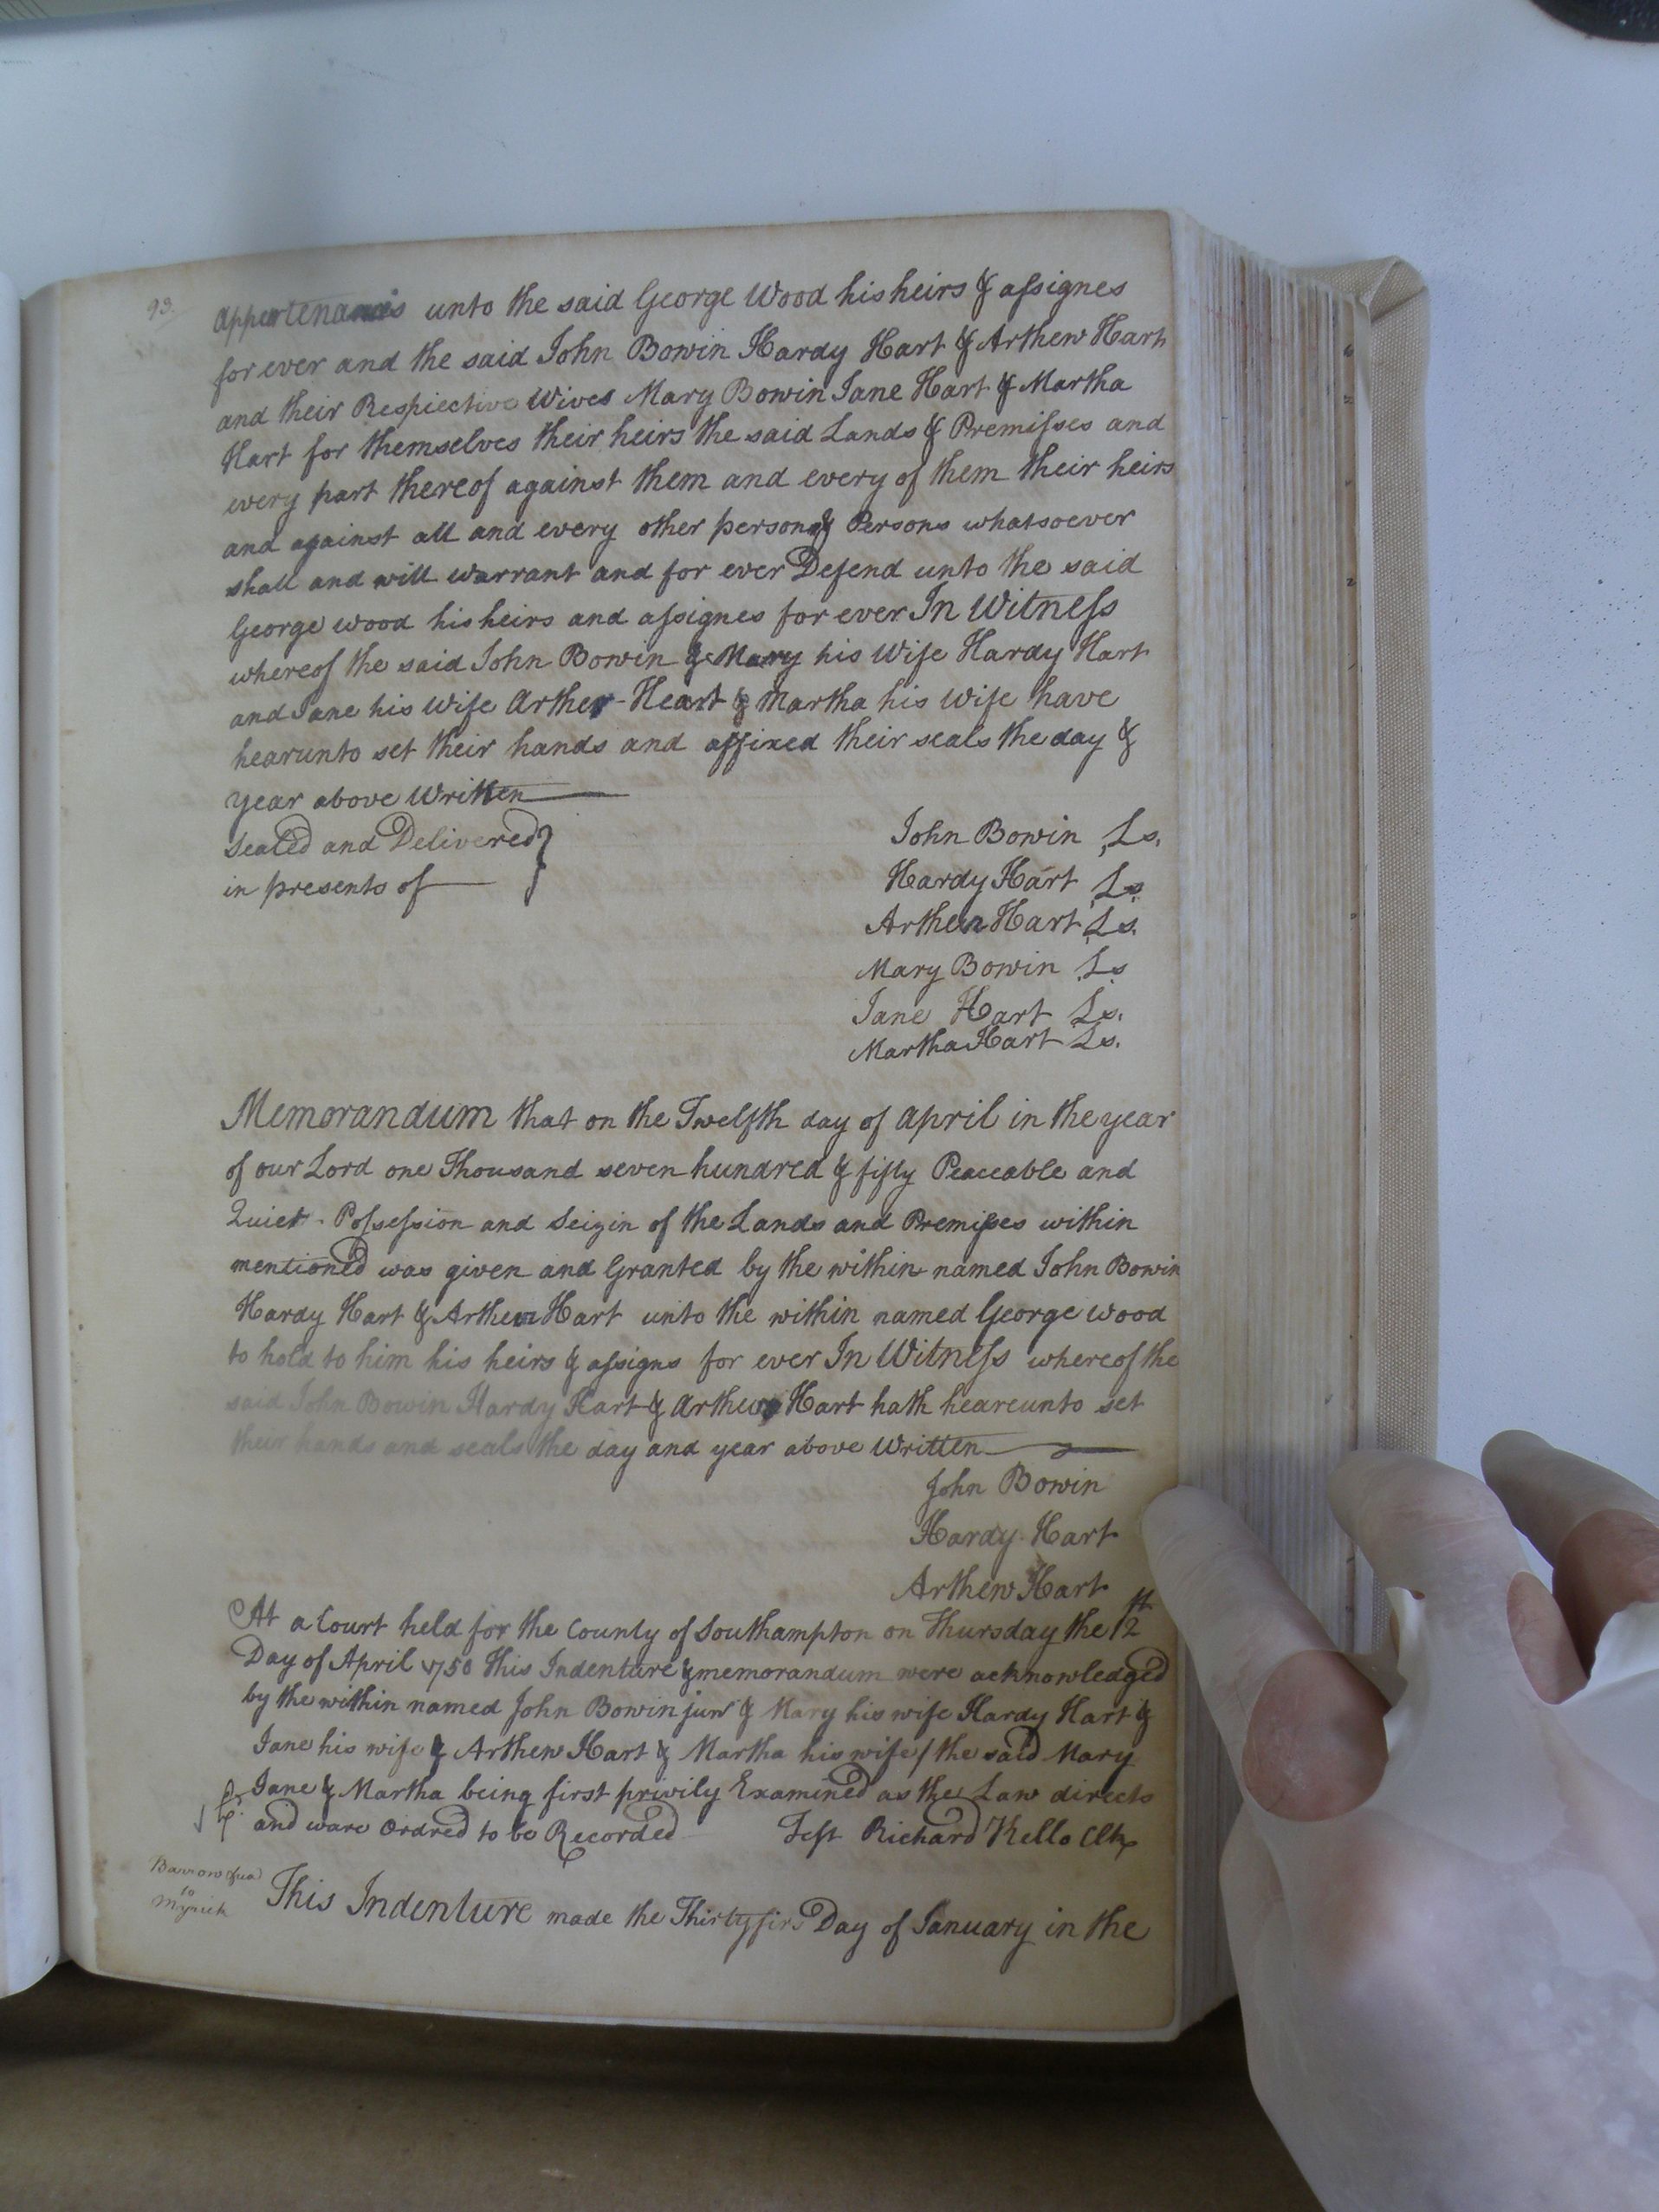 93.
appurtenances unto the said George Wood his heirs & assignes
for ever and the said John Bowin Hardy Hart & Arthew Hart
and their Respiective Wives Mary Bowin Jane Hart & Martha
Hart for themselves their heirs the said Lands & Premisses and
every part thereof against them and every of them their heirs
and against all and every other person & Persons whatsoever
shall and will warrant and for ever Defend unto the said
George wood his heirs and assignes for ever In Witness
whereof the said John Bowin & Mary his Wife Hardy Hart
and Jane his Wife Arther Heart & Martha his Wife have
hearunto set their hands and affixed their seals the day &
year above Written
Sealed and Delivered
in presents of
John Bowin Ls.
Hardy Hart Ls
Arthew Hart Ls.
Mary Bowin Ls
Jane Hart Ls.
Martha Hart Ls.
Memorandum that on the Twelfth day of April in the year
of our Lord one Thousand seven hundred & fifty Peaceable and
Quiet Possession and Seizin of the Lands and Premisses within
mentioned was given and Granted by the within named John Bowin
Hardy Hart & Arthew Hart unto the within named George Wood
to hold to him his heirs & assigns for ever In Witness whereof the
said John Bowin Hardy Hart & Arthew Hart hath heareunto set
their hands and seals the day and year above Written
John Bowin
Hardy Hart
Arthew Hart
At a Court held for the County of Southampton on Thursday the 12th
Day of April 1750 This Indenture & memorandum were acknowledged
by the within named John Bowin junr & Mary his wife Hardy Hart &
Jane his wife & Arthew Hart & Martha his wife / the said Mary
Jane & Martha being first privily Examined as the Law directs
and ware Ordred to be Recorded Test Richard Kello Clk
Barrow
to
Myrick
This Indenture made the Thirty firs Day of January in the